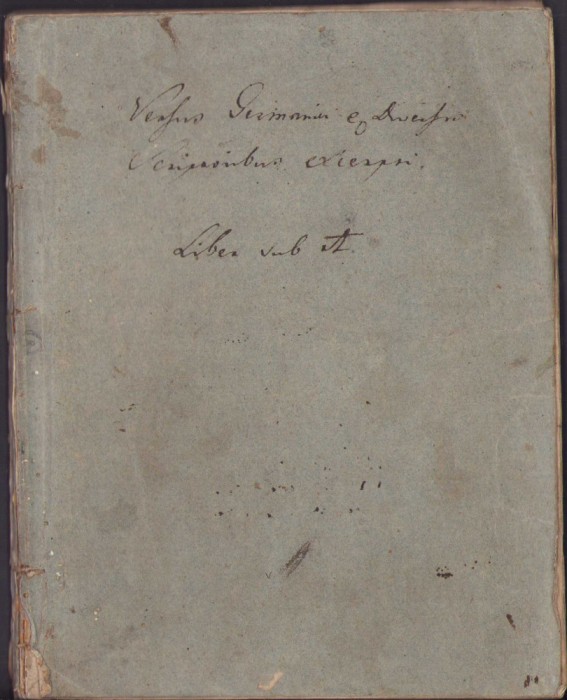 Versus Germanici ex Diversis
Scriptoribus excerpti.
Liber sub A.